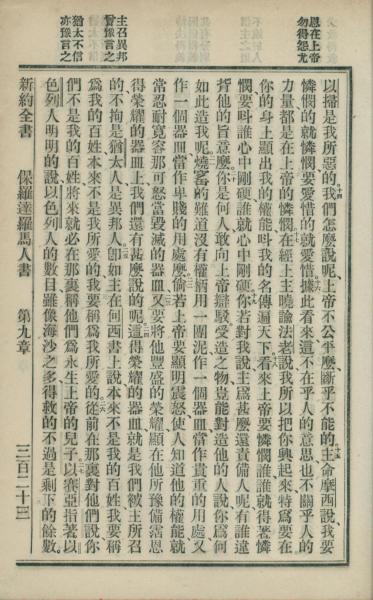 恩在上帝
勿得怨尤
主召異邦
曾豫言之
猶太不信
亦豫言之
以掃是我所惡的我們怎麽說呢上帝不公平麽斷乎不能的主命摩西說我要
憐憫的就憐憫要愛惜的就愛惜據此看來這不在乎人的意思也不關乎人的
力量都是在上帝的憐憫在經上主曉諭法老說我所以把你興起來特爲要在
你的身上顯出我的權能呌我的名傳遍天下看來上帝要憐憫誰誰就得著憐
憫要呌誰心中剛硬誰就心中剛硬你若對我說主爲甚麽還責備人呢有誰違
背他的旨意麽你是何人敢向上帝辯駁受造之物豈能對造他的人說你爲何
如此造我呢燒窰的難道沒有權柄用一團泥作一個器皿當作貴重的用處又
作一個器皿當作卑賤的用處麽倘若上帝要顯明震怒使人知道他的權能就
常忍耐寬容那可怒當毀滅的器皿又要將他豐盛的榮耀顯在他所豫備霑恩
得榮耀的器皿上我們還有甚麽說的呢這得榮耀的器皿就是我們被主所召
的不拘是猶太人是異邦人卽如主在何西書上說本來不是我的百姓我要稱
爲我的百姓本來不是我所愛的我要稱爲我所愛的從前在那裏對他們說你
們不是我的百姓將來就必在那裏稱他們爲永生上帝的兒子以賽亞指著以
色列人明明的說以色列人的數目雖像海沙之多得救的不過是剩下的餘數
新約全書 保羅達羅馬人書 第九章 三百二十三